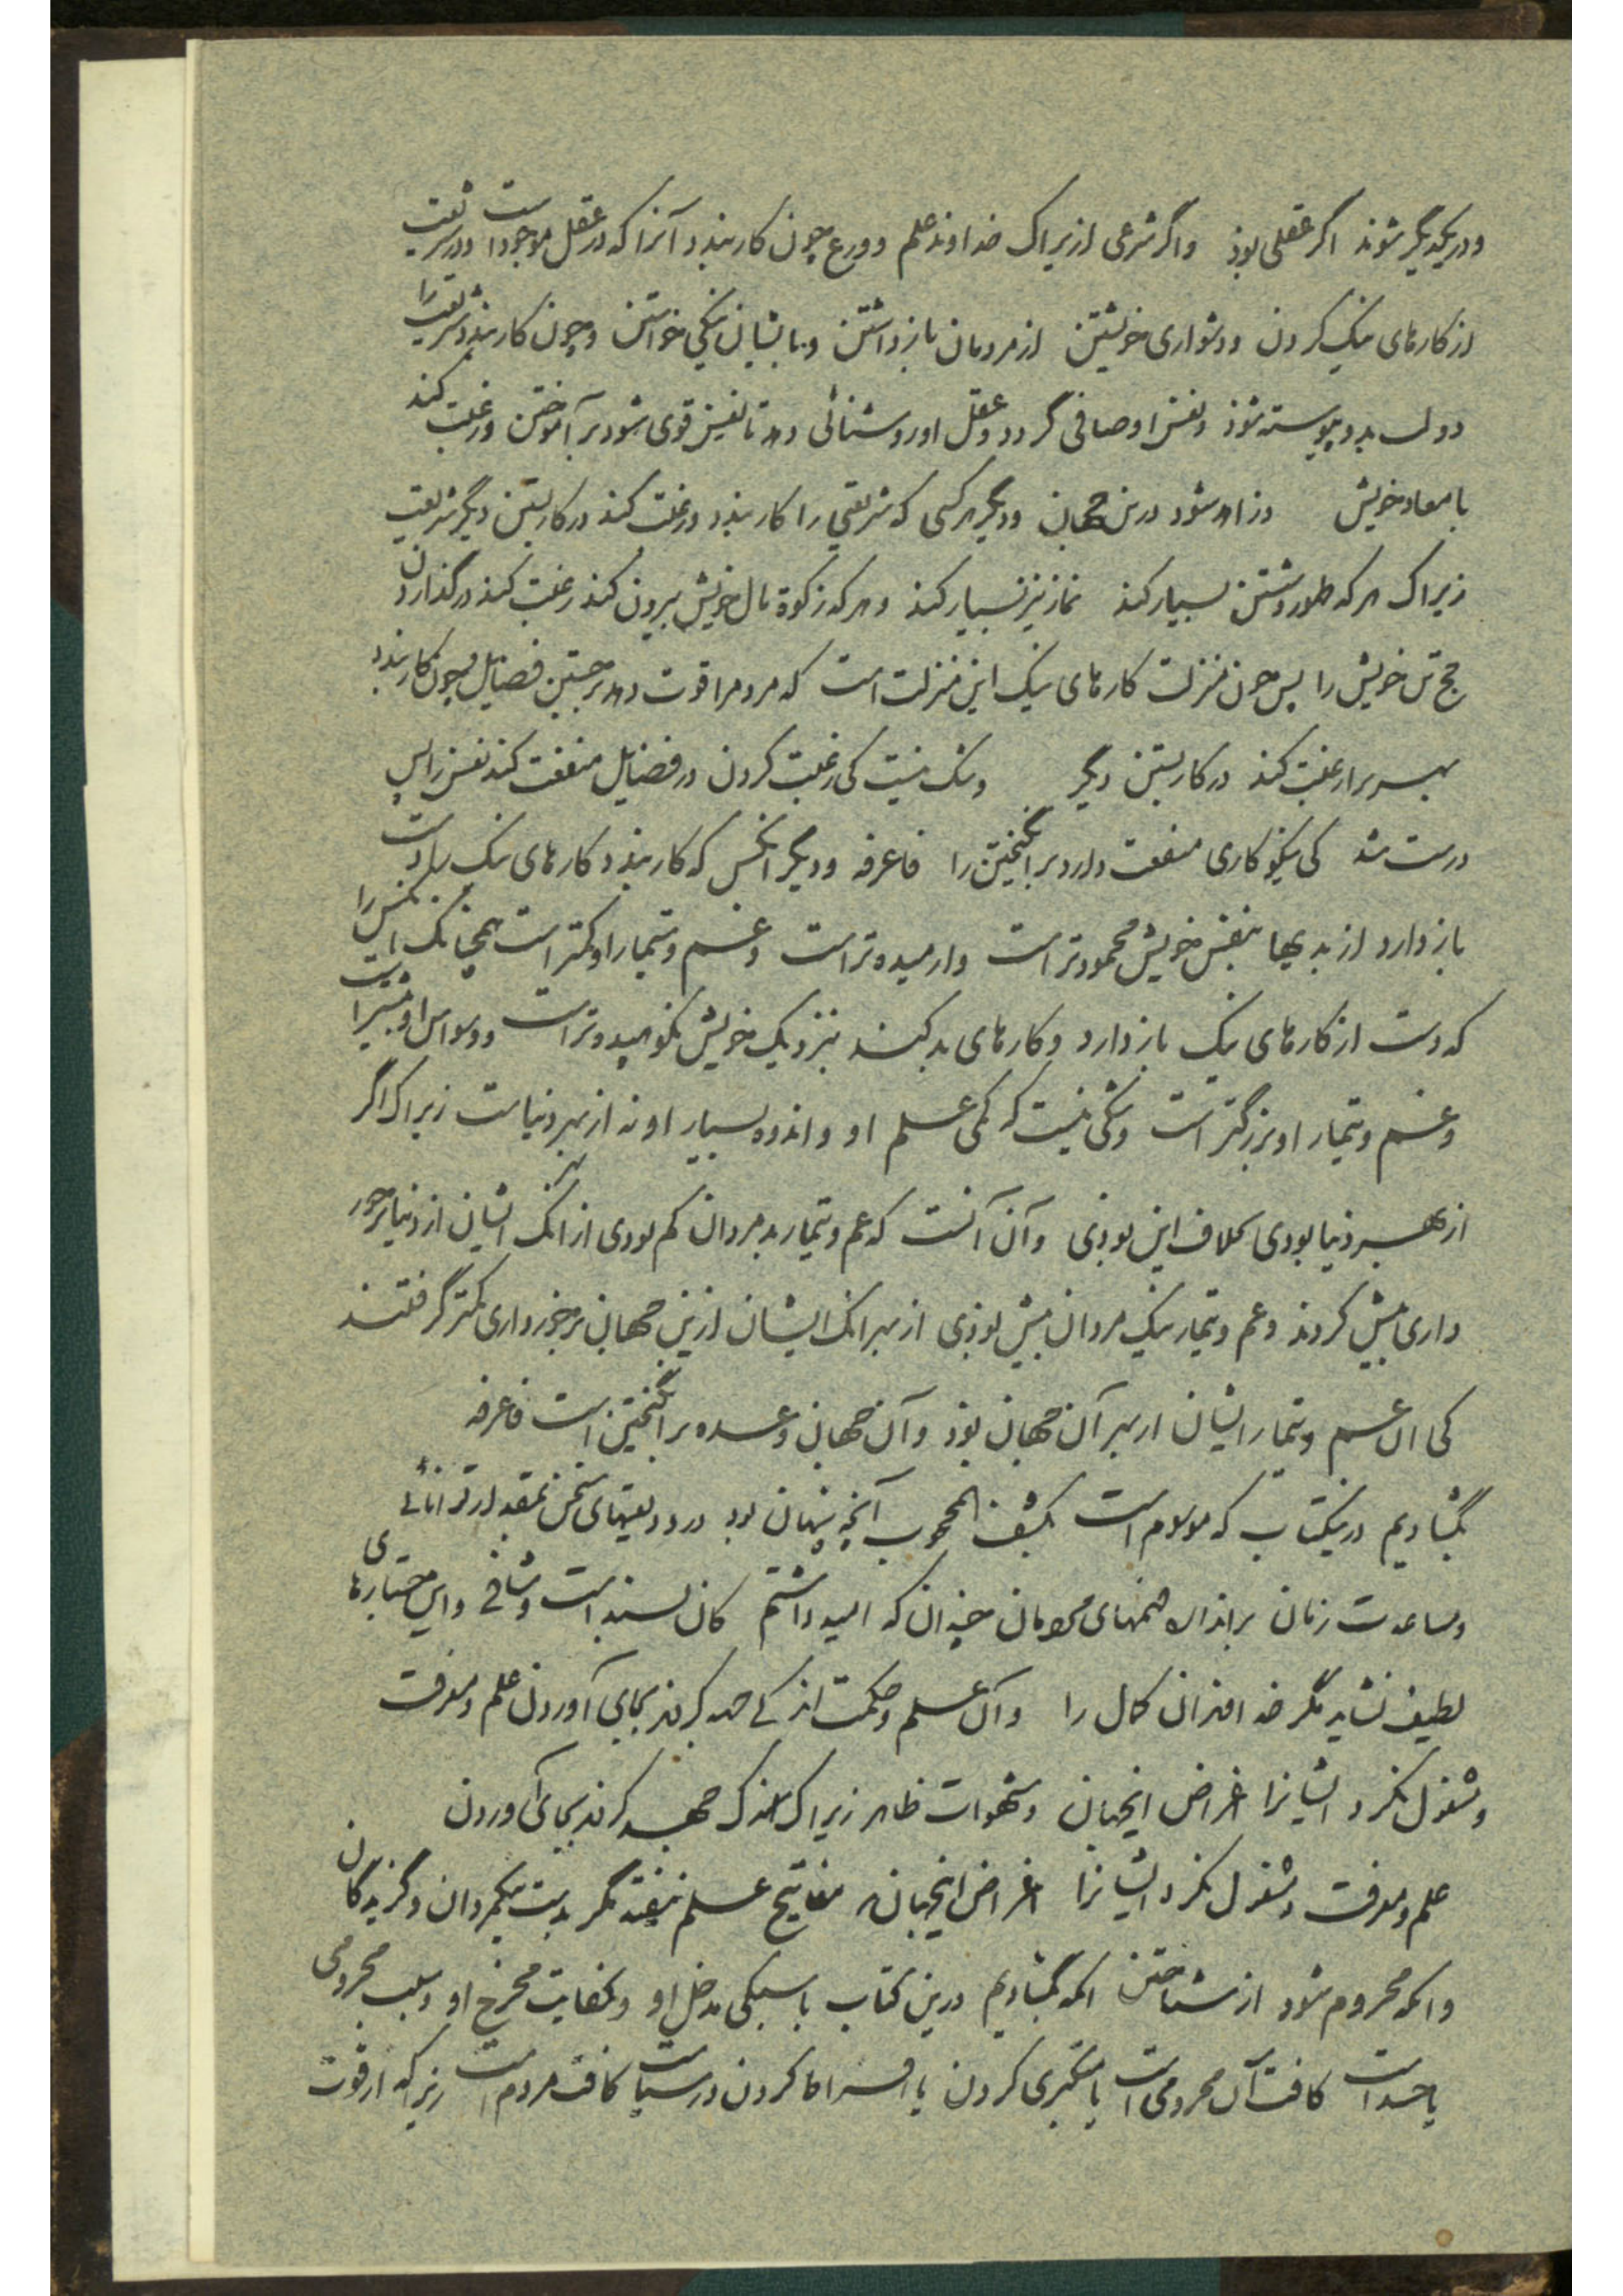 و در یکدیگر شوند اگر عقلی بوذ واگر شرعی ازیراک خداوند علم و ورع چون کار بندد آنرا که در عقل موجود است و در شریعت
از کارهای نیک کردن و دشواری خویشتن از مردمان بازداشتن و بایشان نیکی خواستن و چون کار بندد شریعت را
دولت بدو پیوسته شوذ و نفس او صافی گردد و عقل او روشنائی دهد تا نفس قوی شود بر آموختن و رغبت کند
با معاد خویش و زاهد شود درین جهان و دیگر هر کسی که شریعتی را کار بندد و رغبت کند در کار بستن دیگر شریعت
زیراک هر که طهور و شستن بسیار کند نماز نیز بسیار کند و هر که زکوة مال خویش بیرون کند رغبت کند در گذاردن
حج تن خویش را پس چون منزلت کارهای نیک این منزلت است که مردم را قوت دهد بر جستن فضایل و چون کار بندد
رغبت کند در کار بستن دیگر و شک نیست کی رغبت کردن در فضایل منفعت کند نفس را پس
درست شد کی نیکوکاری منفعت دارد بر انگیختن را فاعرفه و دیگر انکس که کار بندد کارهای نیک را و دست
باز دارد از بدیها بنفس خویش محمودتر است و ارمیده تر است و غم و تیمار او کمتر است همچنانک انکس را
که دست از کارهای نیک باز دارد و کارهای بد کند بنزدیک خویش نکوهیده تر است و وسواس او بیشتر است
و غم و تیمار او بزرگتر است و شکی نیست که کمی علم او و اندوه بسیار او نه از بهر دنیاست زیراک اگر
از بهر دنیا بودی بخلاف این بوذی و آن آنست که غم و تیمار بد مردان کم بودی از بهر انک ایشان از دنیا برخور
داری بیش کردند و غم و تیمار نیک مردان بیش بوذی از بهر انک ایشان ازین جهان برخورداری کمتر گرفتند
کی ان غم و تیمار ایشان از بهر آن جهان بوذ و آن جهان وعده بر انگیختن است فاعرفه
بگشادیم درین کتاب که موسوم است بکشف المحجوب آنچه پنهان بود در ودیعتهای سخن بمقدار توانائی
و مساعدت زمان بر اندازه فهمهای مردمان چندان که امید داشتم کان بسنده است و شافی و این اختیارهای
لطیف نشاید مگر خداوندان کمال را و آن علم و حکمت اند کی جهد کردند بجای آوردن علم و معرفت
و مشغول نکرد ایشانرا اغراض اینجهان و شهوات ظاهر زیراک جهد کردند بجای آوردن
علم و معرفت و مشغول نکرد ایشانرا اغراض اینجهان مفاتیح علم نیفتد مگر بدست نیکمردان و گزیدگان
وانکه محروم شود از شناختن انکه بگشادیم درین کتاب با سبکی مدخل او و کفایت مخرج او و سبب محرومی
یا حسد است کافت آن محرومی است یا متکبری کردن یا کردن در کافت مردم است زیرا که از قوت